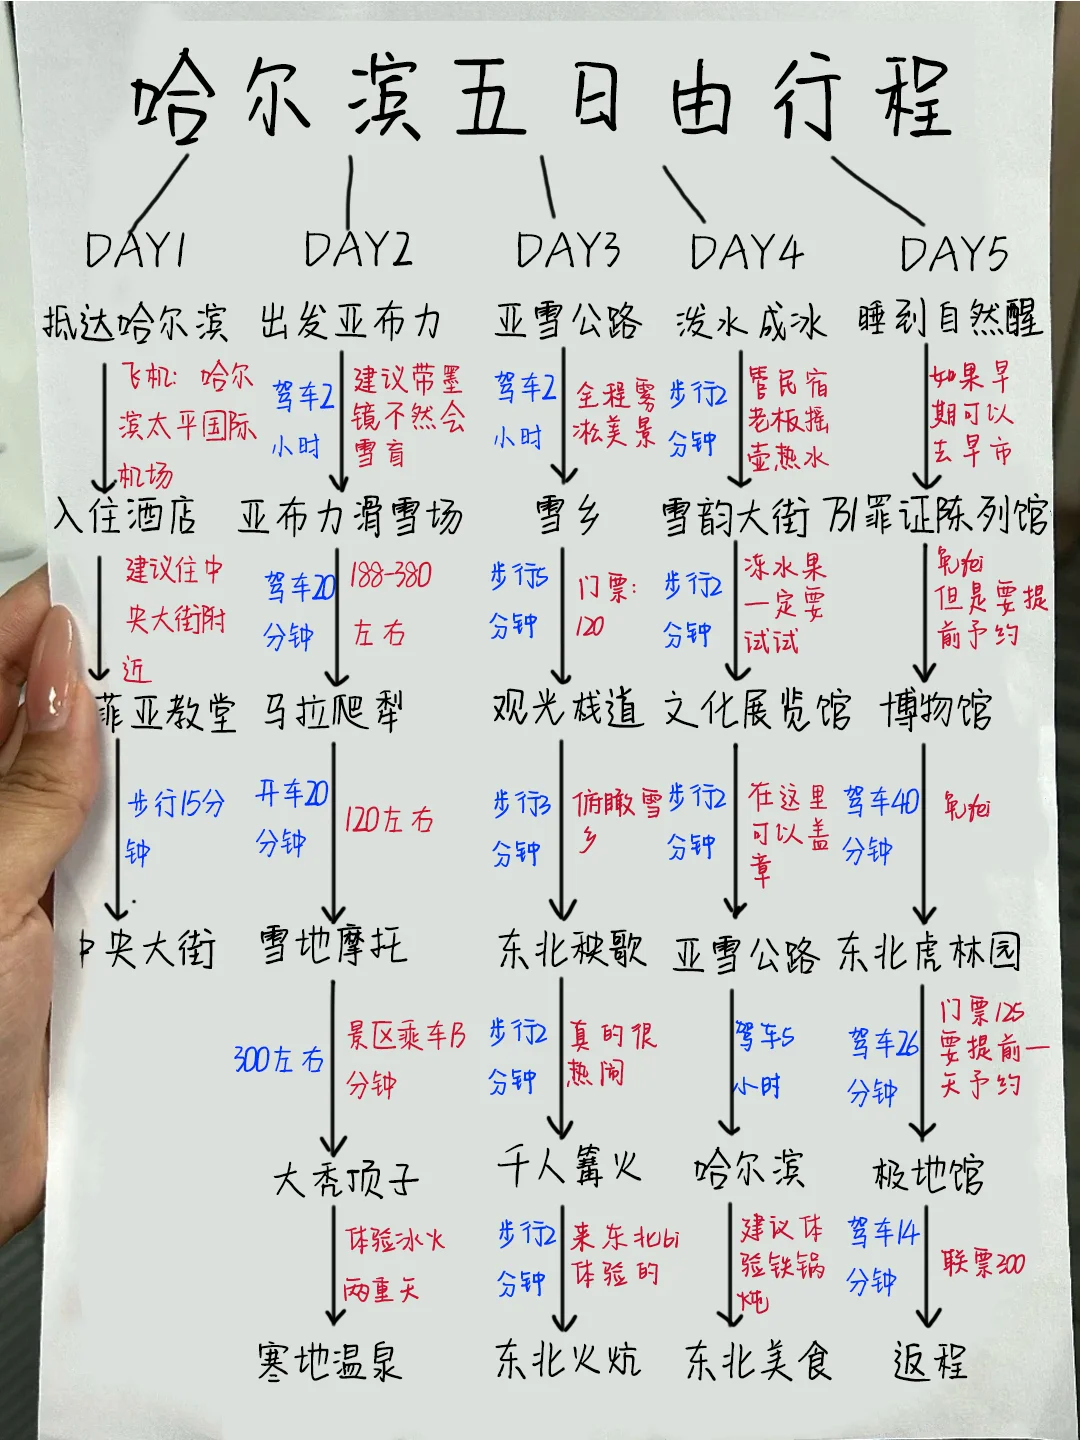 哈尔滨五日由行程
DAY1
抵达哈尔滨
飞机：哈尔
滨太平国际
机场
入住酒店
建议住中
央大街附
近
菲亚教堂
步行15分
钟
中央大街
DAY2
出发亚布力
驾车2
小时
建议带墨
镜不然会
雪盲
亚布力滑雪场
驾车20
分钟
188-380
左右
马拉爬犁
开车20
分钟
120左右
雪地摩托
300左右
景区乘车13
分钟
大秃顶子
体验冰火
两重天
寒地温泉
DAY3
亚雪公路
驾车2
小时
全程雾
凇美景
雪乡
步行5
分钟
门票：
120
观光栈道
步行3
分钟
俯瞰雪
乡
东北秧歌
步行2
分钟
真的很
热闹
千人篝火
步行2
分钟
来东北bi
体验的
东北火炕
DAY4
泼水成冰
步行2
分钟
管民宿
老板摇
壶热水
雪韵大街
步行2
分钟
冻水果
一定要
试试
文化展览馆
步行2
分钟
在这里
可以盖
章
亚雪公路
驾车5
小时
哈尔滨
建议体
验铁锅
炖
东北美食
DAY5
睡到自然醒
如果早
期可以
去早市
731罪证陈列馆
免fei
但是要提
前予约
博物馆
驾车40
分钟
免fei
东北虎林园
驾车26
分钟
门票125
要提前一
天予约
极地馆
驾车14
分钟
联票300
返程